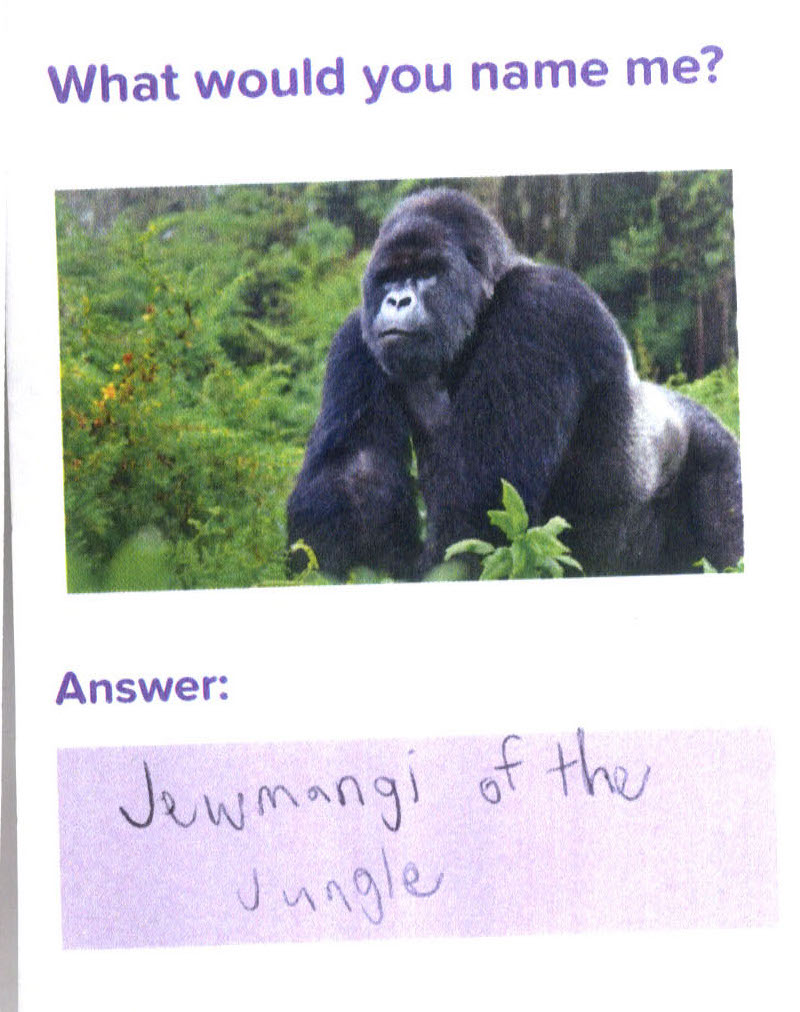 What would you name me?
Answer:
Jewmangi of the
Jungle